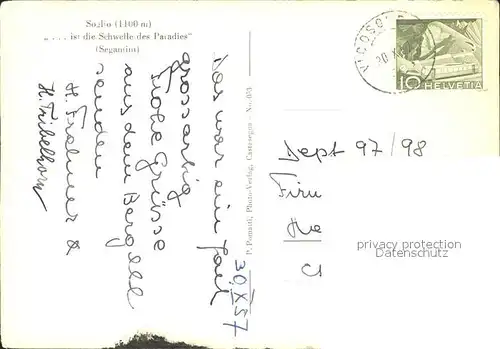 Soglio (1100 m)
„. . . ist die Schwelle des Paradies“
(Segantini)
Das war eine Fahrt
grossartig
Frohe Grüsse
aus dem Bergell
senden
H. Frehner &
H. Tribelhorn
30.X.57
P. Pomatti, Photo-Verlag, Castasegna - No.
VICOSO
30.X
10 HELVETIA
Dept 97/98
Firm
He
Cl
privacy protection
Datenschutz